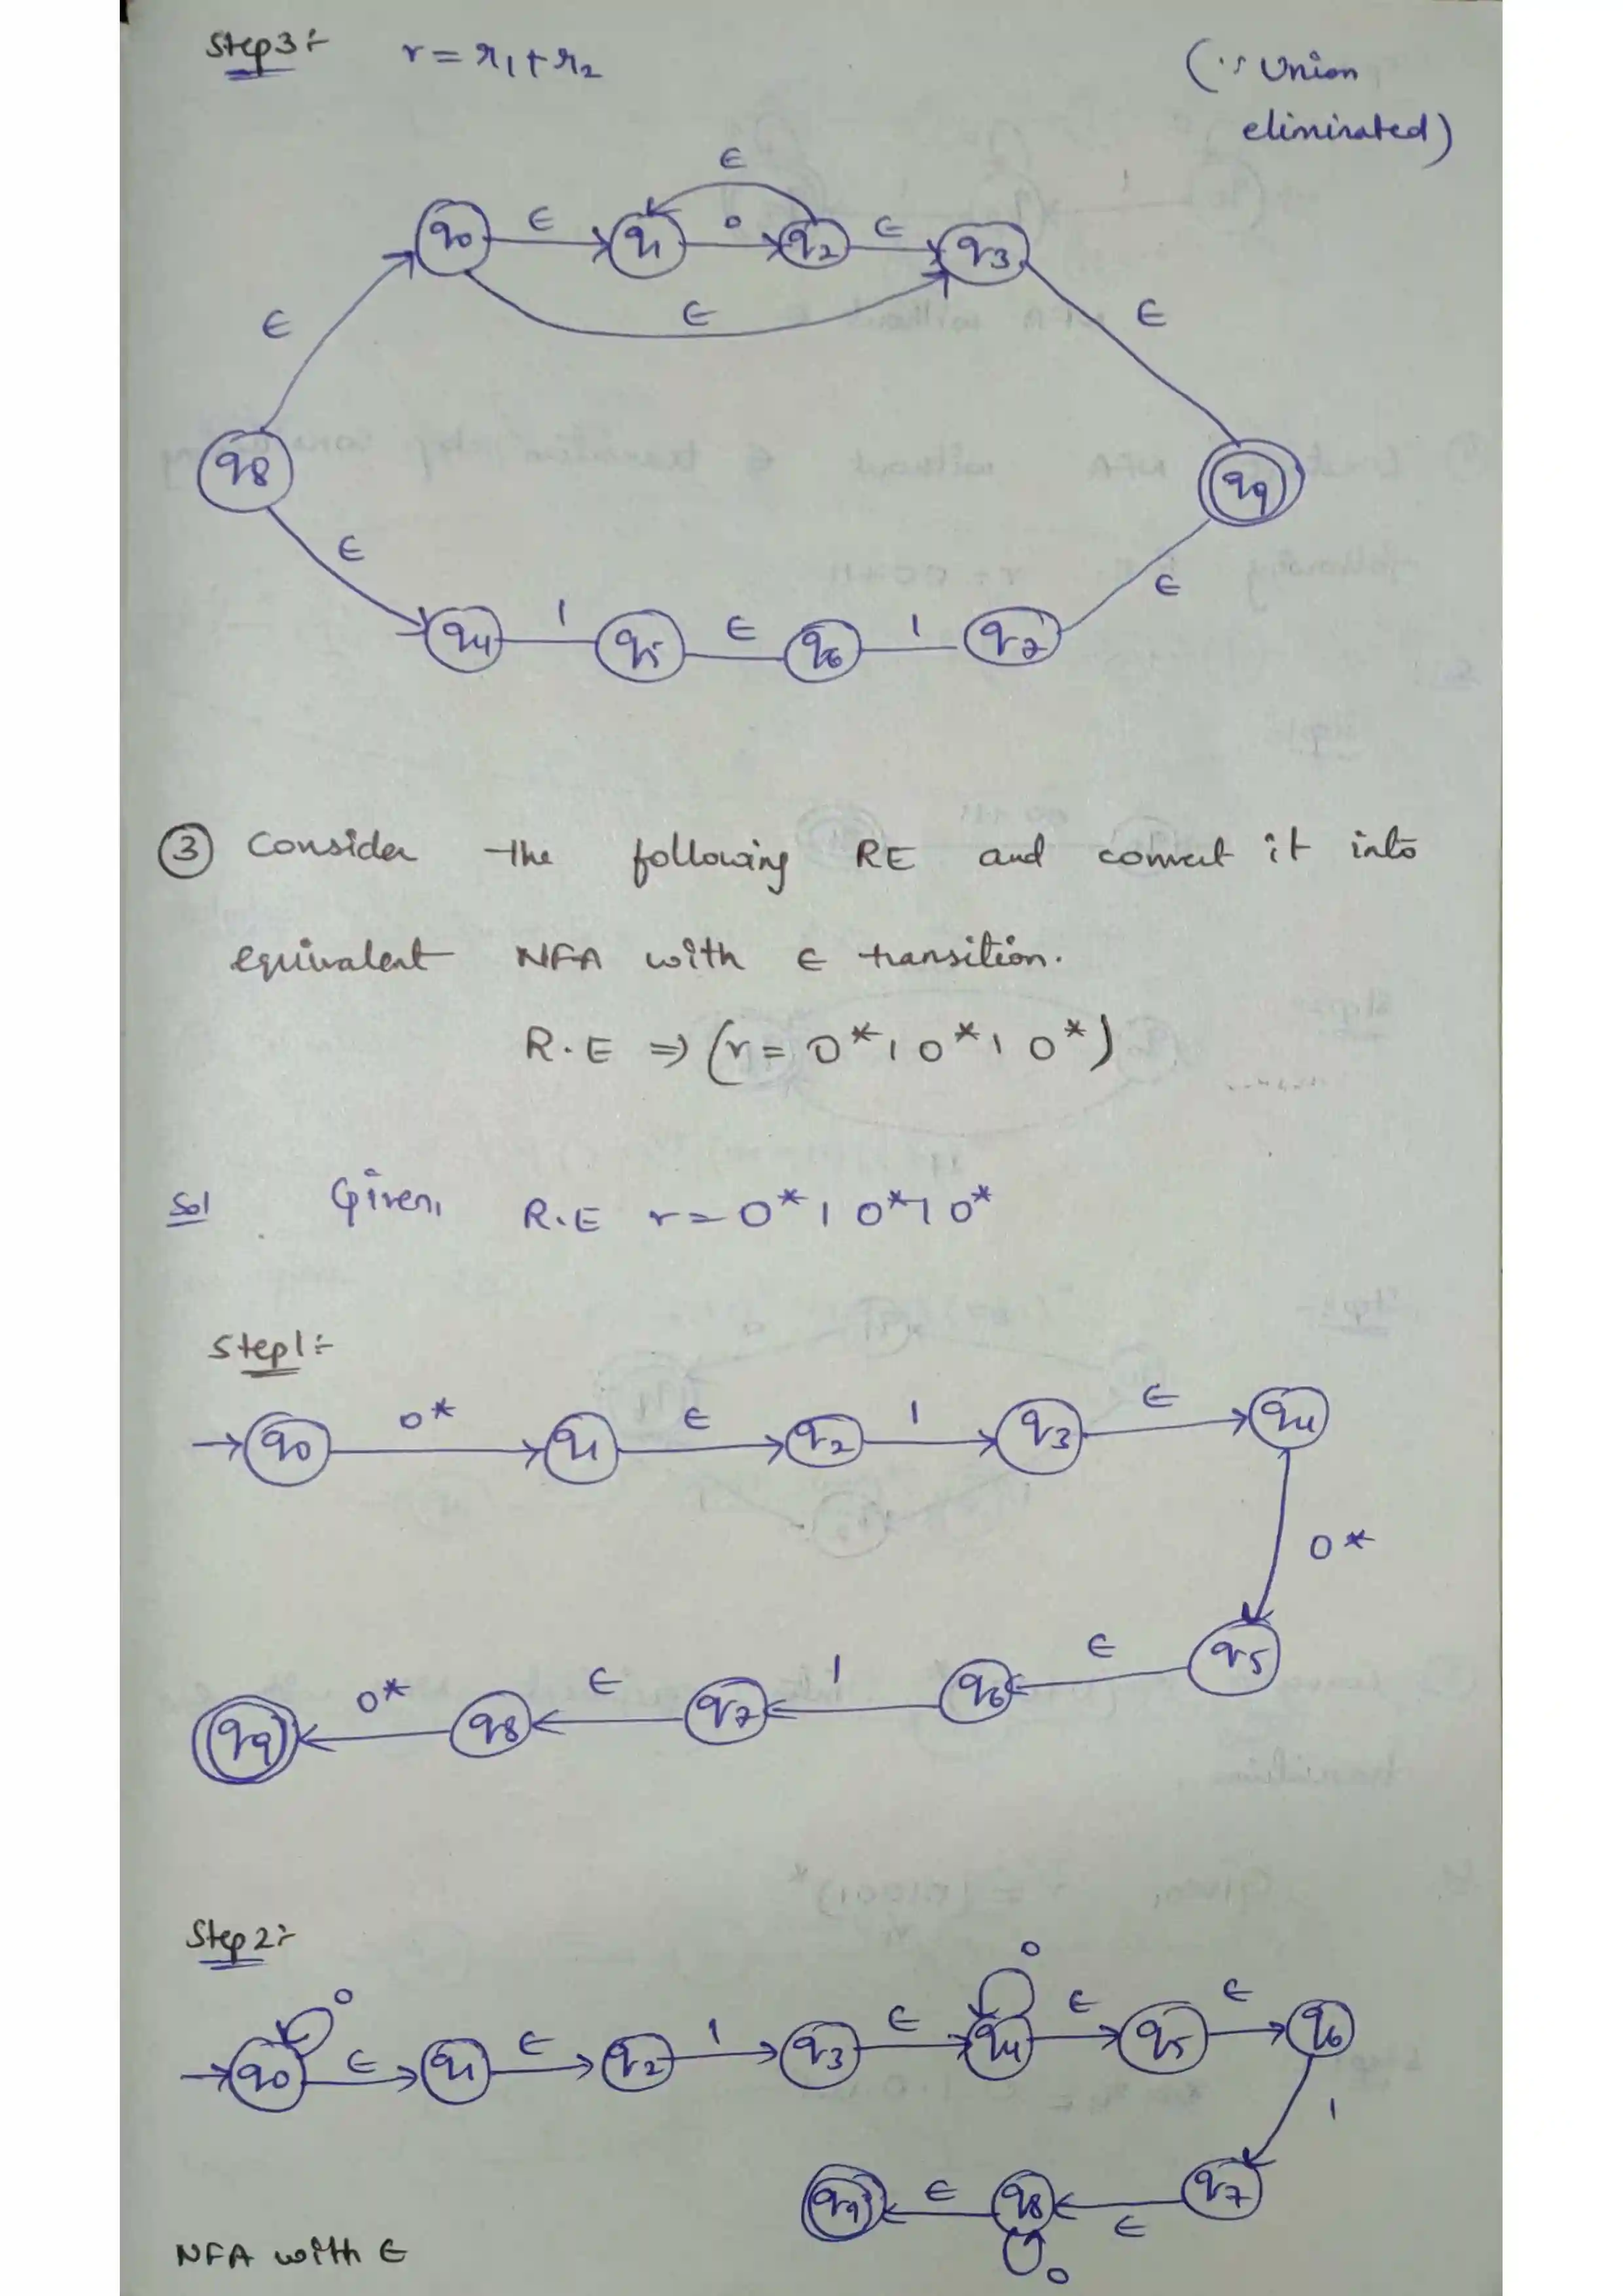 Step3:- r = r1 + r2 (∵ Union
eliminated)
ϵ
q0 ϵ q1 0 q2 ϵ q3
ϵ ϵ ϵ
q8 q9
ϵ ϵ
q4 1 q5 ϵ q6 1 q7
③ Consider the following RE and convert it into
equivalent NFA with ϵ transition.
R.E ⇒ (r = 0*10*10*)
Sol Given, R.E r = 0*10*10*
Step1:-
q0 0* q1 ϵ q2 1 q3 ϵ q4
0*
q9 0* q8 ϵ q7 1 q6 ϵ q5
Step2:-
0 0
q0 ϵ q1 ϵ q2 1 q3 ϵ q4 ϵ q5 ϵ q6
1
q9 ϵ q8 ϵ q7
NFA with ϵ 0